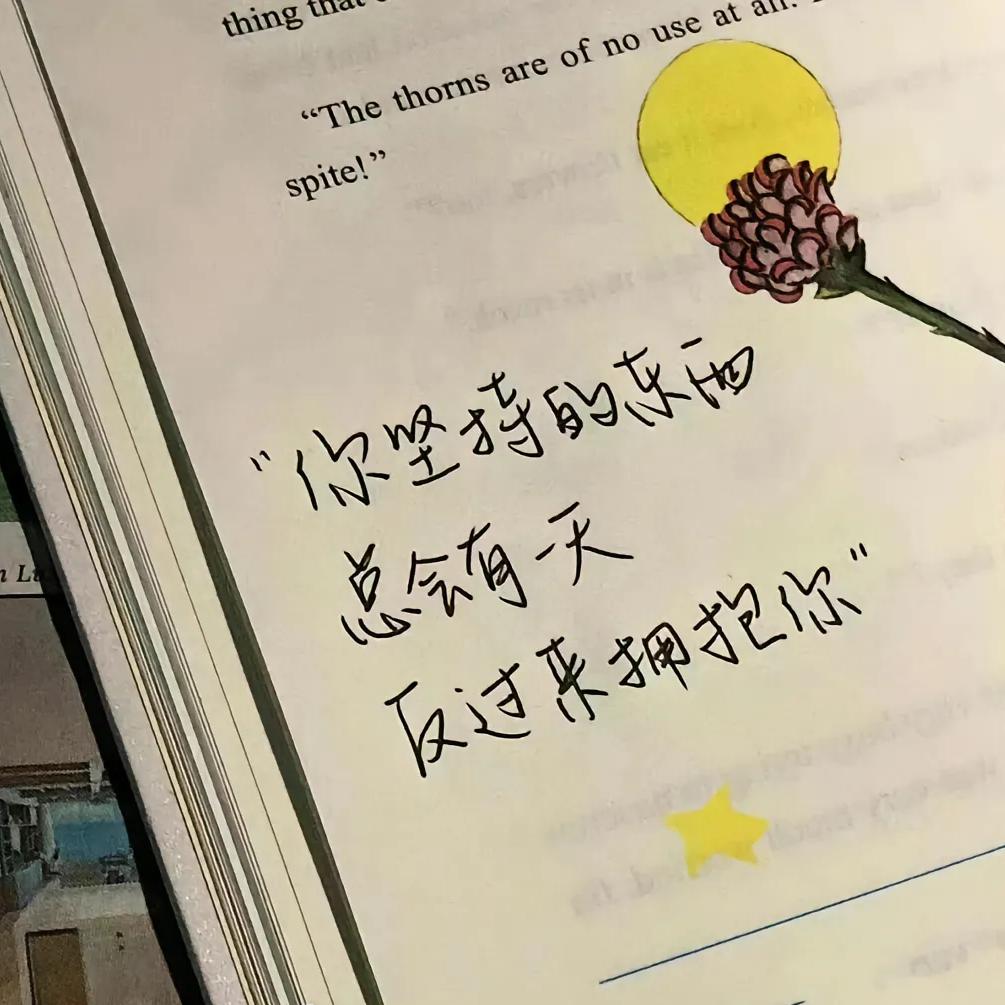 thing that
“The thorns are of no use at all.
spite!”
"你坚持的东西
总会有一天
反过来拥抱你"